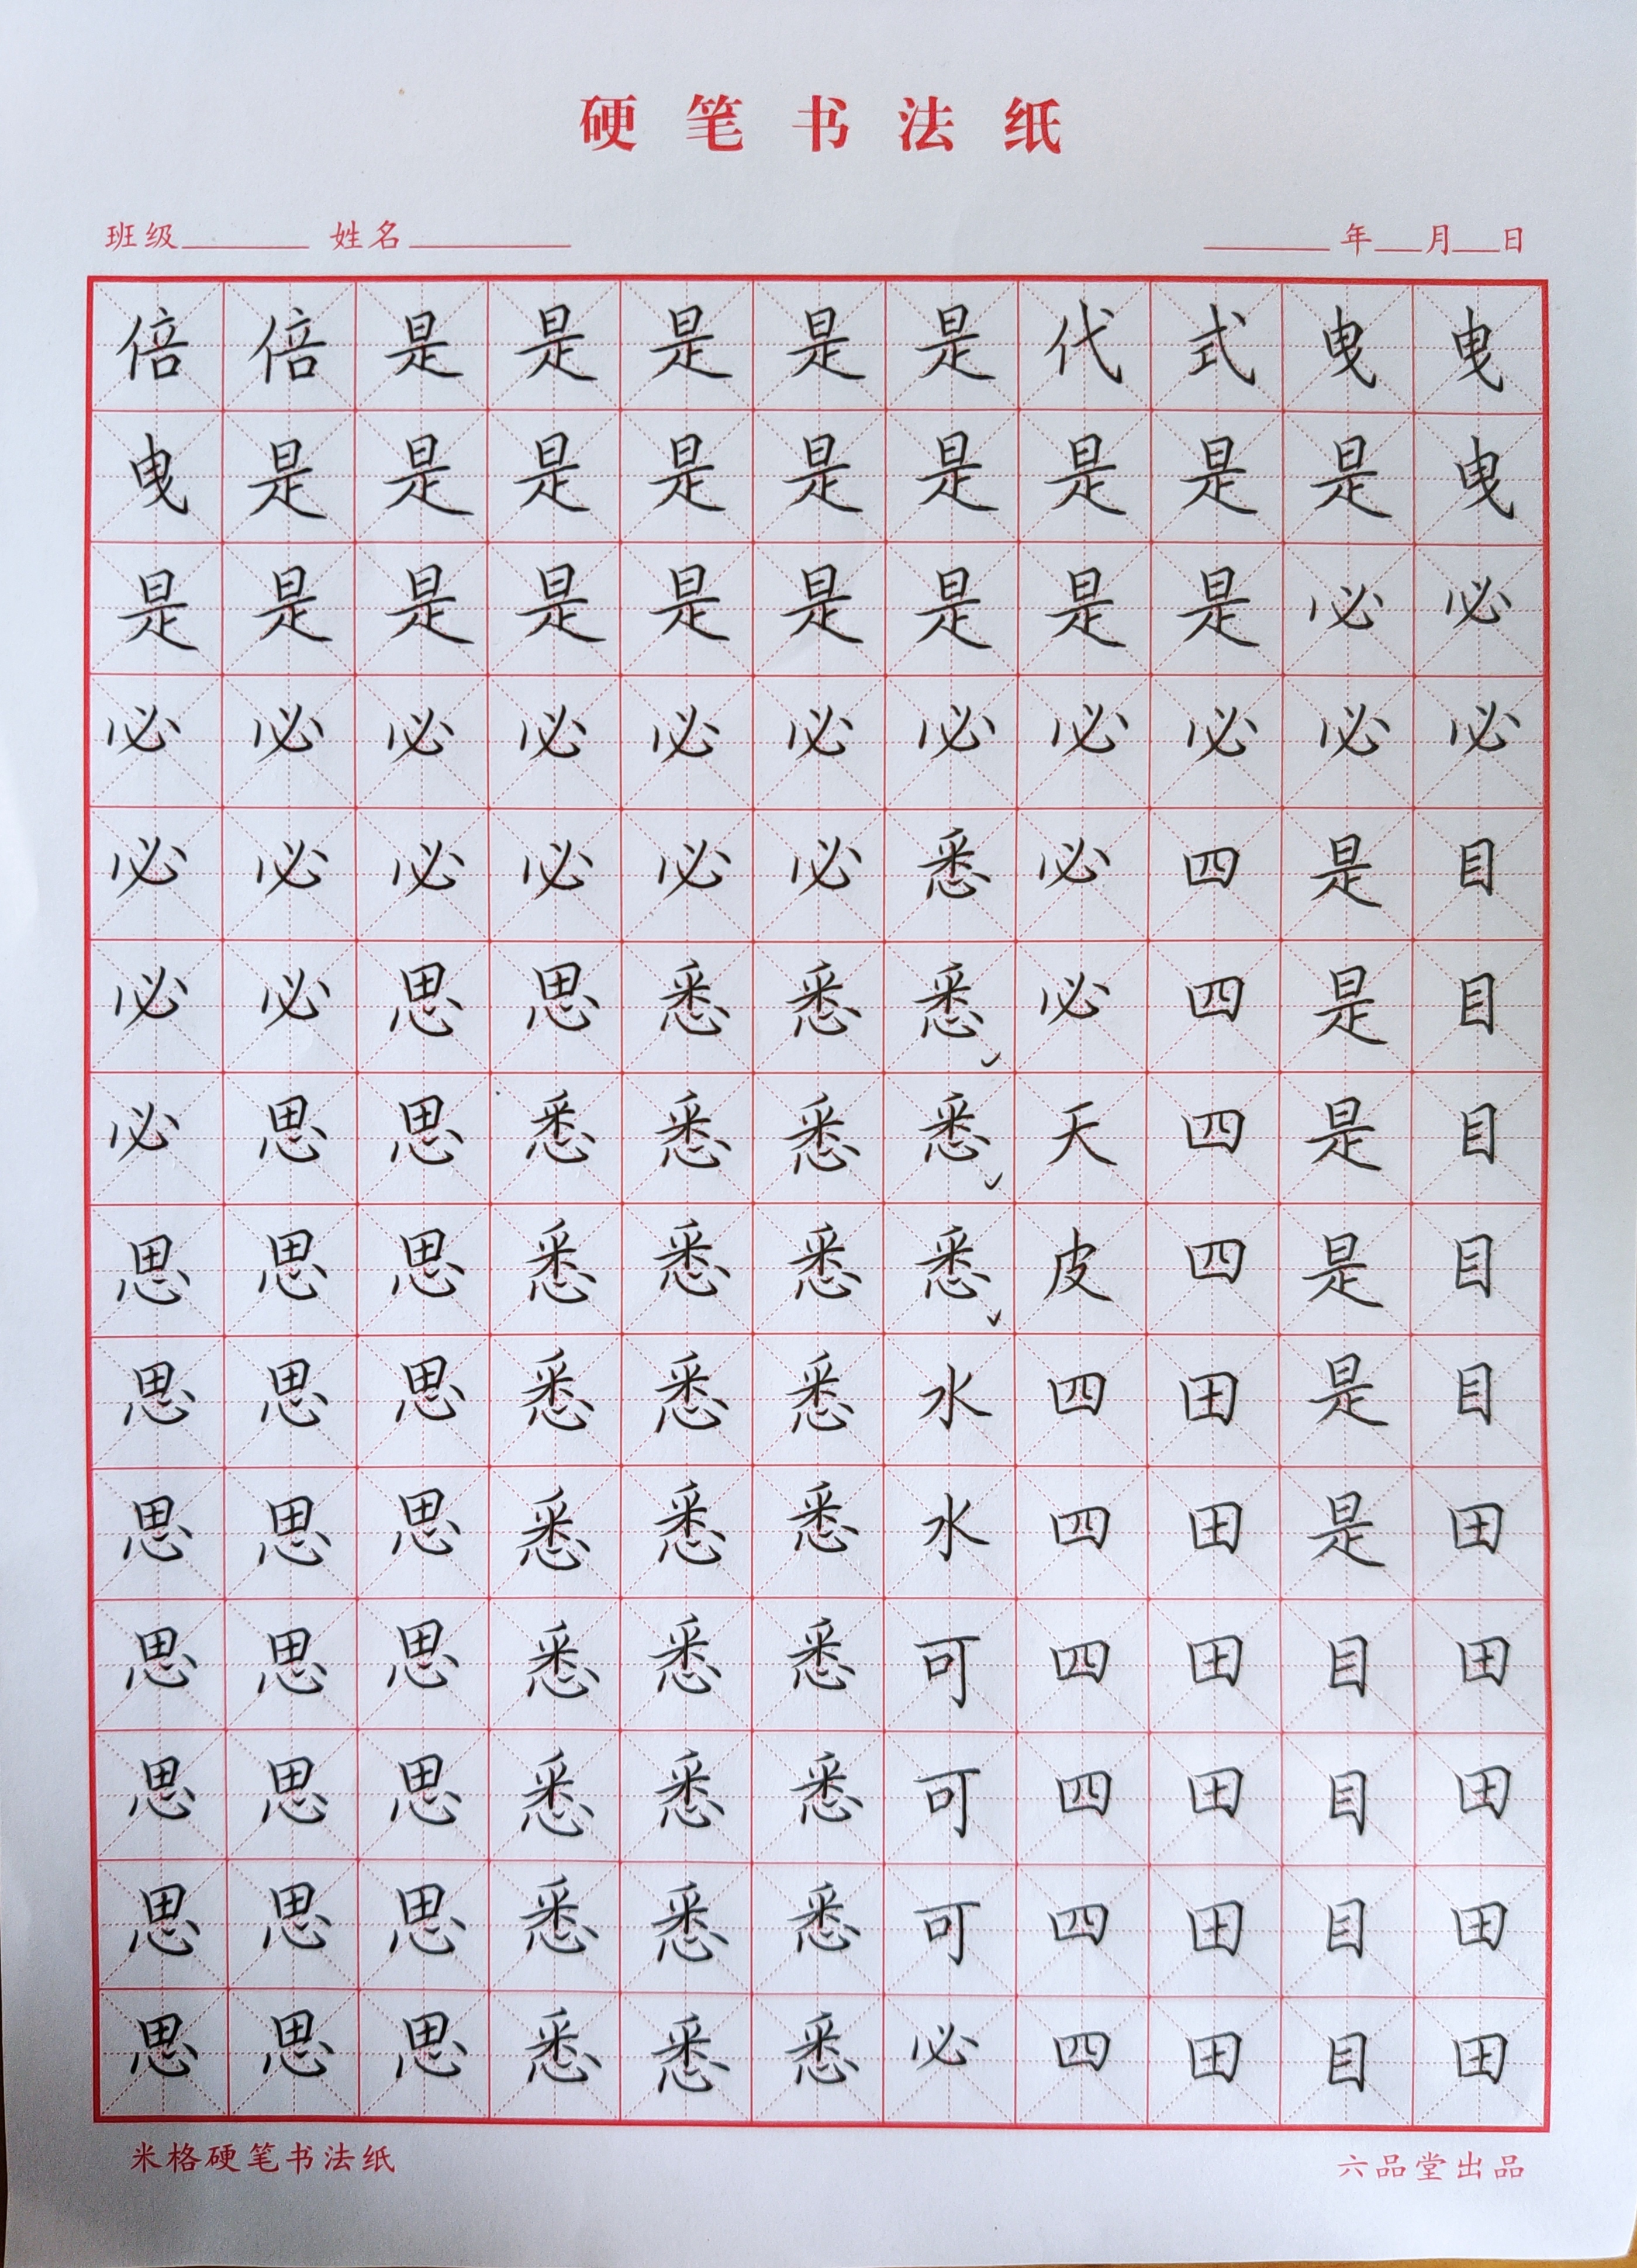 硬笔书法纸
班级 姓名 年 月 日
倍倍是是是是是代式曳曳
曳是是是是是是是是是曳
是是是是是是是是是必必
必必必必必必必必必必必
必必必必必必悉必四是目
必必思思悉悉悉必四是目
必思思悉悉悉悉天四是目
思思思悉悉悉悉皮四是目
思思思悉悉悉水四田是目
思思思悉悉悉水四田是田
思思思悉悉悉可四田目田
思思思悉悉悉可四田目田
思思思悉悉悉可四田目田
思思思悉悉悉必四田目田
米格硬笔书法纸 六品堂出品